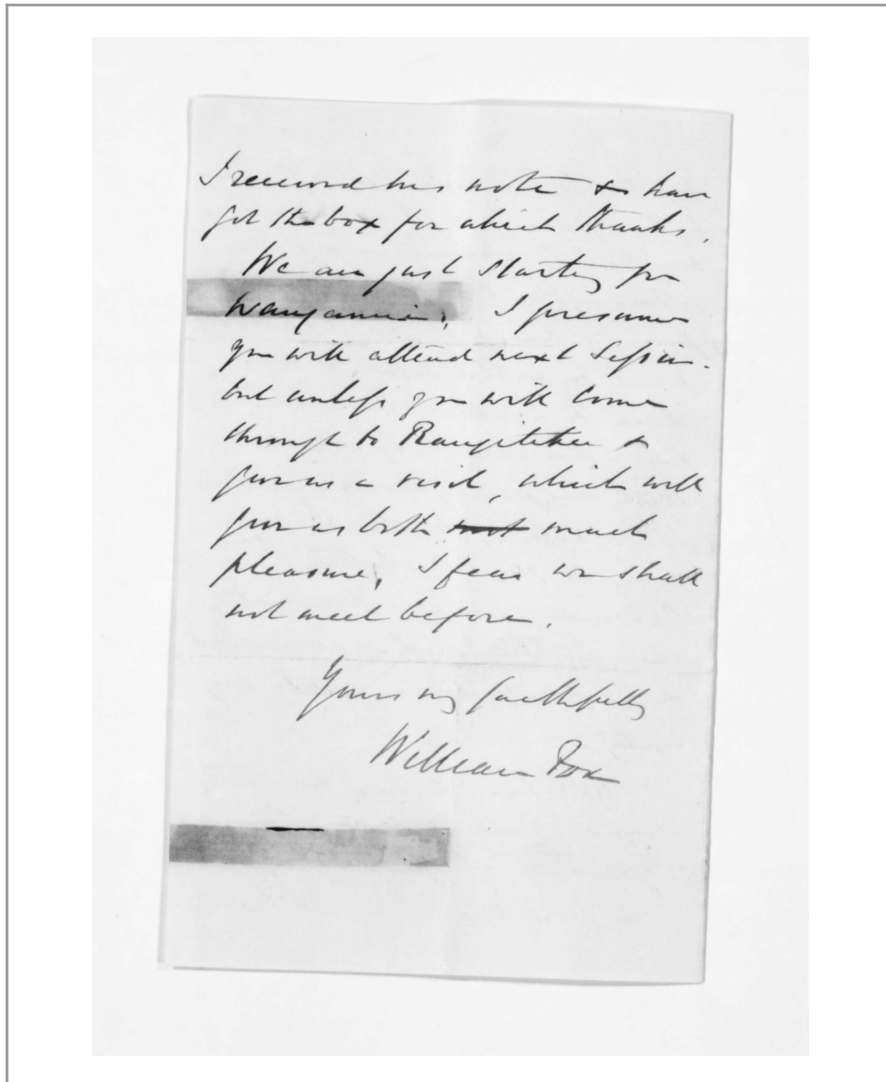 I received his note & have
got the box for which thanks.
We are just starting for
Wanganui. I presume
you will attend next Session.
but unless you will come
through to Rangitikei &
give us a visit, which will
give us both not much
pleasure, I fear we shall
not meet before.
Yours very faithfully
William Fox